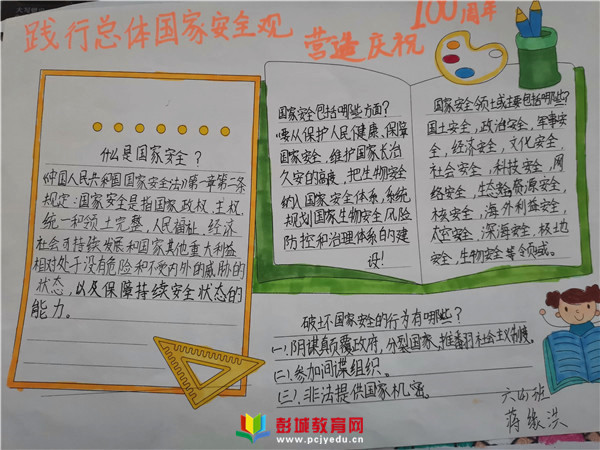 践行总体国家安全观
营造庆祝
100周年
什么是国家安全?
《中国人民共和国国家安全法》第一章第二条
规定:国家安全是指国家政权、主权、
统一和领土完整,人民福祉、经济
社会可持续发展和国家其他重大利益
相对处于没有危险和不受内外的威胁的
状态,以及保障持续安全状态的
能力。
国家安全包括哪些方面?
要从保护人民健康、保障
国家安全,维护国家长治
久安的高度,把生物安全
纳入国家安全体系,系统
规划国家生物安全风险
防控和治理体系的建
设!
国家安全领土或主要包括哪些?
国土安全,政治安全,军事安
全,经济安全,文化安全,
社会安全,科技安全,网
络安全,生态安全,资源安全,
核安全,海外利益安全,
太空安全,深海安全,极地
安全,生物安全等领域。
破坏国家安全的行为有哪些?
(一).阴谋颠覆政府,分裂国家,推翻社会主义制度。
(二).参加间谍组织。
(三).非法提供国家机密。
蒋缘洪
彭城教育网
www.pcjyedu.cn